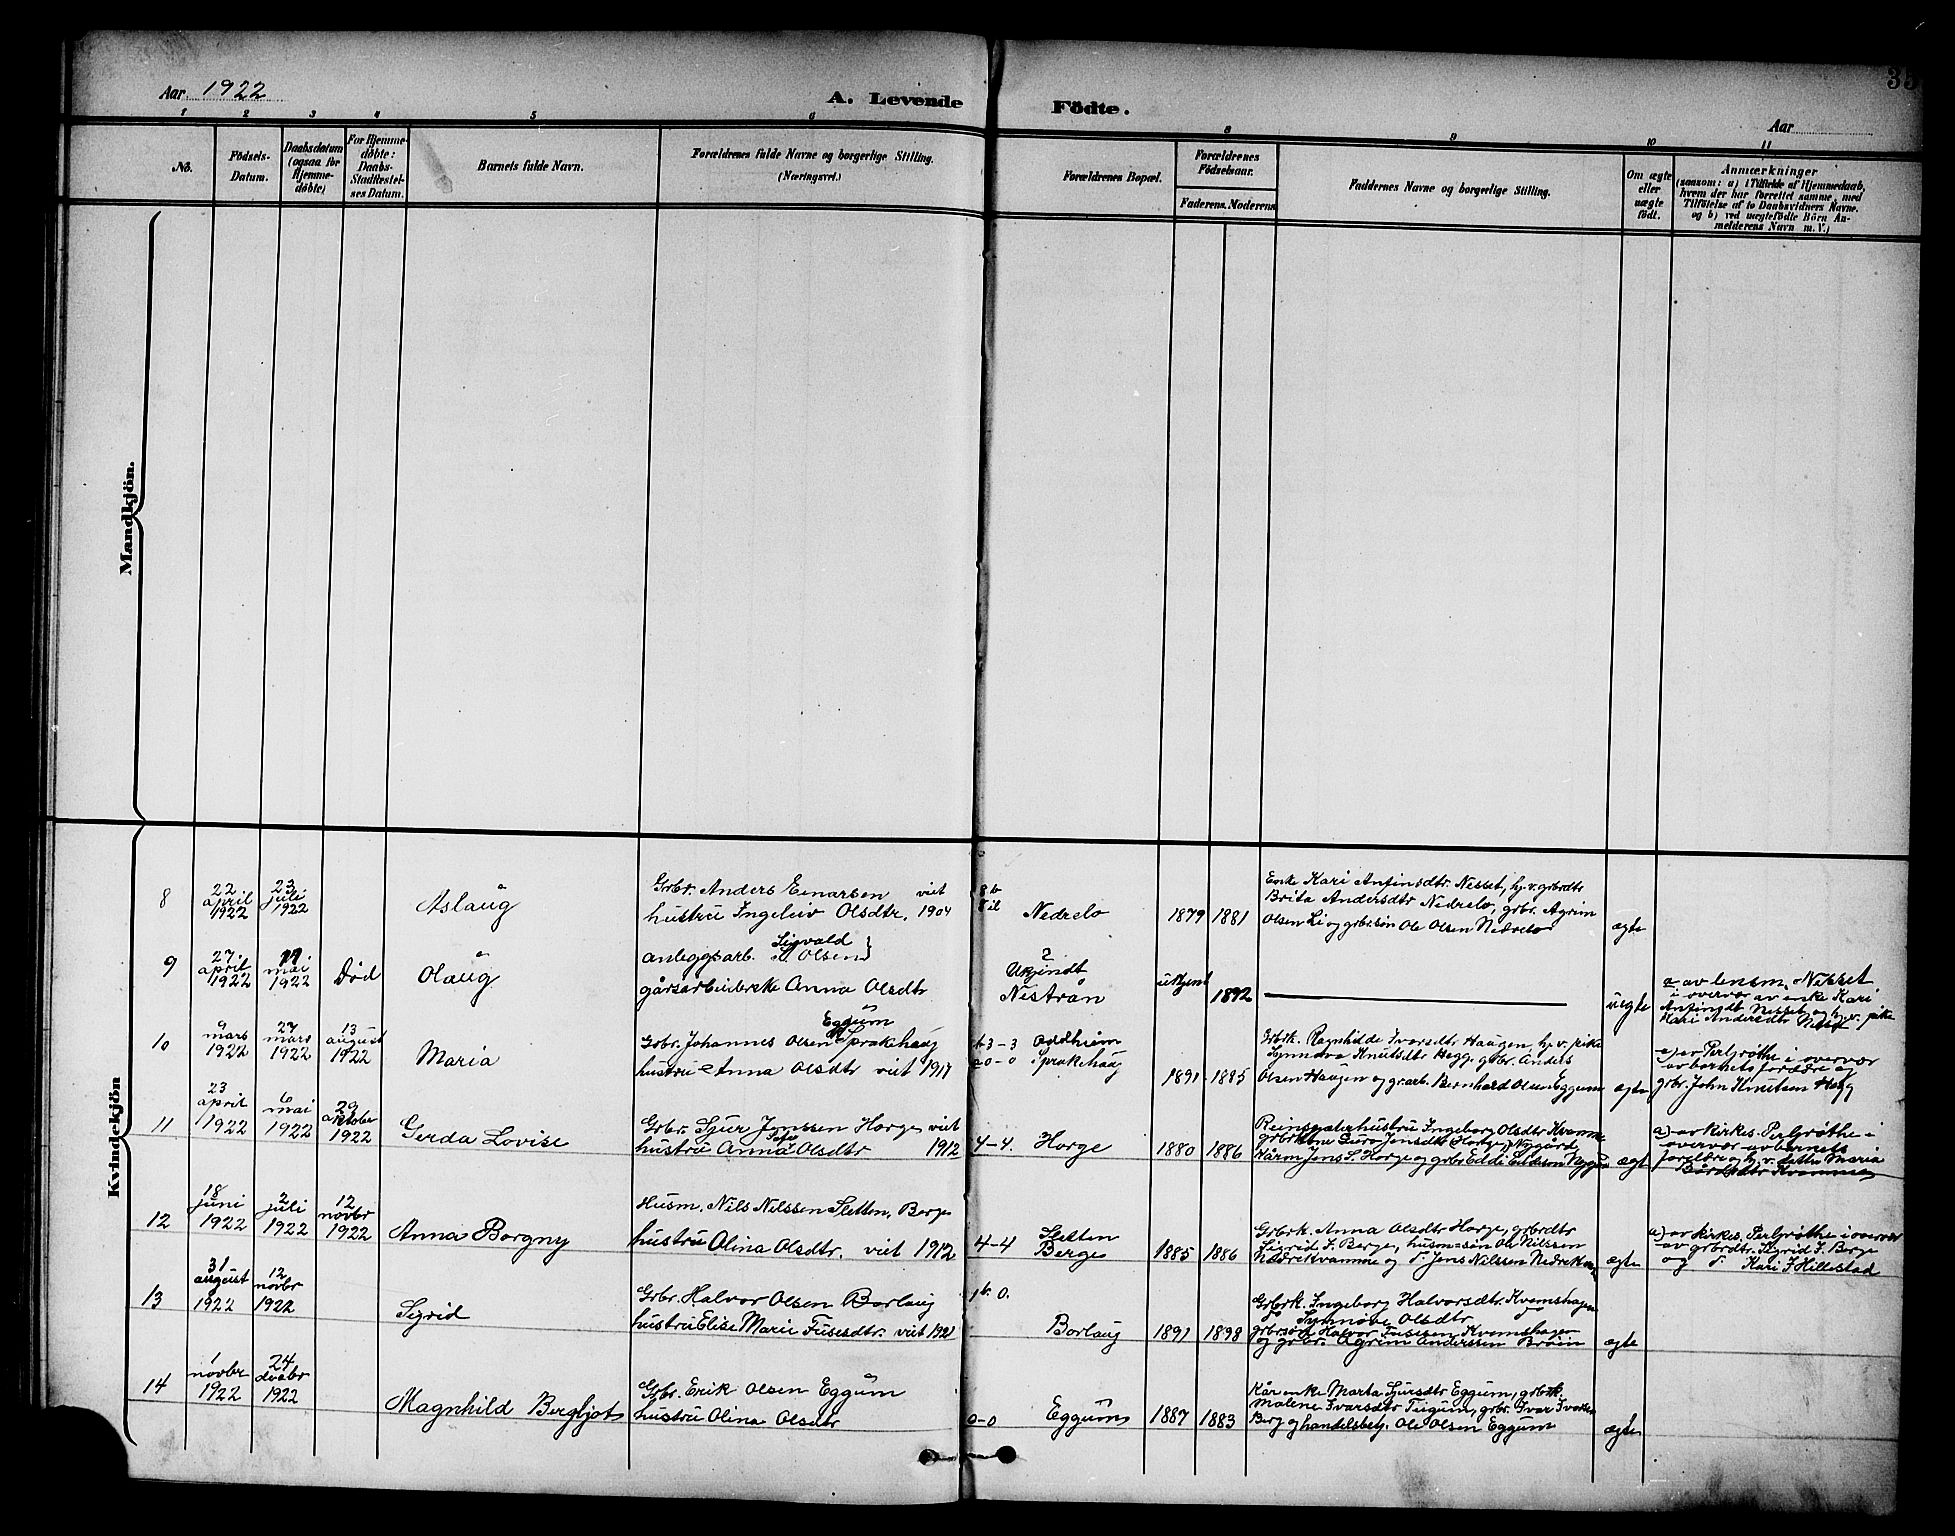 Aar 1922
A. Levende Födte.
Aar
35
1 2 3 4 5 6 8 9 10 11
No.
Födsels-
Datum.
Daabsdatum
(ogsaa for
Hjemme-
döbte)
For Hjemme-
döbte:
Daabs-
Stadfæstel-
ses Datum.
Barnets fulde Navn.
Forældrenes fulde Navne og borgerlige Stilling.
(Næringsvei.)
Forældrenes Bopæl.
Forældrenes
Födselsaar.
Faderens. Moderens
Faddernes Navne og borgerlige Stilling.
Om ægte
eller
uægte
födt.
Anmærkninger
(saasom: a) i Tilfælde af Hjemmedaab,
hvem der har forrettet samme, med
Tilföielse af to Daabsvidners Navne.
og b) ved uægtefödte Börn An-
melderens Navn m. V.)
Mandkjön.
Kvindekjön
8
22
april
1922
23
juli
1922
Aslaug
Grbr. Anders Einarsen viet
hustru Ingeleiv Olsdtr. 1904
Nedrelo
1879 1881
Enke Kari Anfinsdtr. Nesset, hj. v. grbrdtr
Brita Andersdtr Nedrelo, grbr. Agrim
Olsen Li og grbr.søn Ole Olsen Nedrelo
ægte
9
27
april
1922
mai
1922
Død
Olaug
anleggsarb. Sigvald Olsen}
gårsarbeiderske Anna Olsdtr
?
Ukjendt
Nestrån
ukjent
1892
uegte
a av lensm. Nesset
i overvær av enke Kari
Anfinsdt. Nesset og hj. v. pike
Kari Andersdtr Nesset
10
9
mars
1922
27
mars
1922
13
august
1922
Maria
Eggum
Grbr. Johannes Olsen Sprakehaug
hustru Anna Olsdtr viet 1917
4-3-3
2-0-0
Oddheim
Sprakehaug
1891 1885
Grbrk. Ragnhilde Ivarsdtr Haugen, hj. v. pike
Synnøva Knutsdtr Hegg, grbr. Anders
Olsen Haugen og grarb. Bernhard Olsen Eggum
ægte
a) av Perl Grøthe i overvær
av barnets foreldre og
grbr. John Knutsen Hegg
11
23
april
1922
6
mai
1922
29
oktober
1922
Gerda Lovise
Grbr. Sjur Jenssen Horge viet
hustru Anna Olsdtr 1912
4-4.
Horge
1880 1886
hustru Ingeborg Olsdtr Kvamme
Guro Jensdtr (Horge) Nygård
Kårm Jens S. Horge og grbr
ægte
a) av kirkes. Perl Grøthe i
overvær av barnets
foreldre og hj. v. Maria
Bårdsdtr Kvamme
12
18
juni
1922
2
juli
1922
12
novbr
1922
Anna Borgny
Husm. Nils Nilssen Sletten, Berge
hustru Olina Olsdtr. viet 1912
4-4
Sletten
Berge
1885 1886
Grbrk. Anna Olsdtr Horge, grbrdtr
Sigrid J. Berge, husm-søn Ole Nilssen
Nedrekvamme og Jens Nilssen
ægte
a) av kirkes. Perl Grøthe i overvær
av grbrdtr. Sigrid J. Berge
og Kari J Hillestad
13
31
august
1922
12
novbr
1922
Sigrid
Grbr. Halvor Olsen Borlaug
hustru Elise Marie viet 1921
1b. 0.
Borlaug
1891 1898
Grbrk. Ingeborg Halvorsdtr. Kvamshagen
Synnøve Olsdtr
grbrsøn Halvor Kvamshagen
og grbr. Agrim Anderssen
ægte
14
1
novbr
1922
24
1922
Magnhild Bergljot
Grbr. Erik Olsen Eggum
hustru Olina Olsdtr
0-0
Eggum
1887 1883
Kår enke Marta Sjursdtr Eggum, grbrk.
Malene Ivarsdtr grbr. Ivar
Berg og handelsbetj. Ole Olsen Eggum
ægte